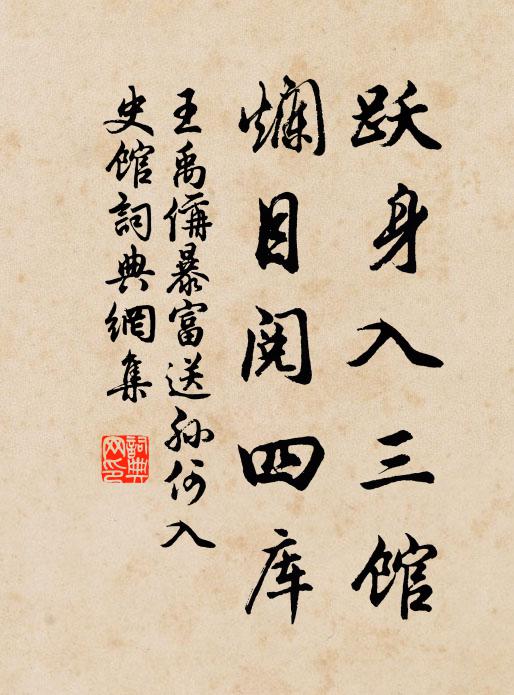 跃身入三馆
爛目阅四库
王禹偁暴富送孙何入
史馆詞典網集
詞典
网印